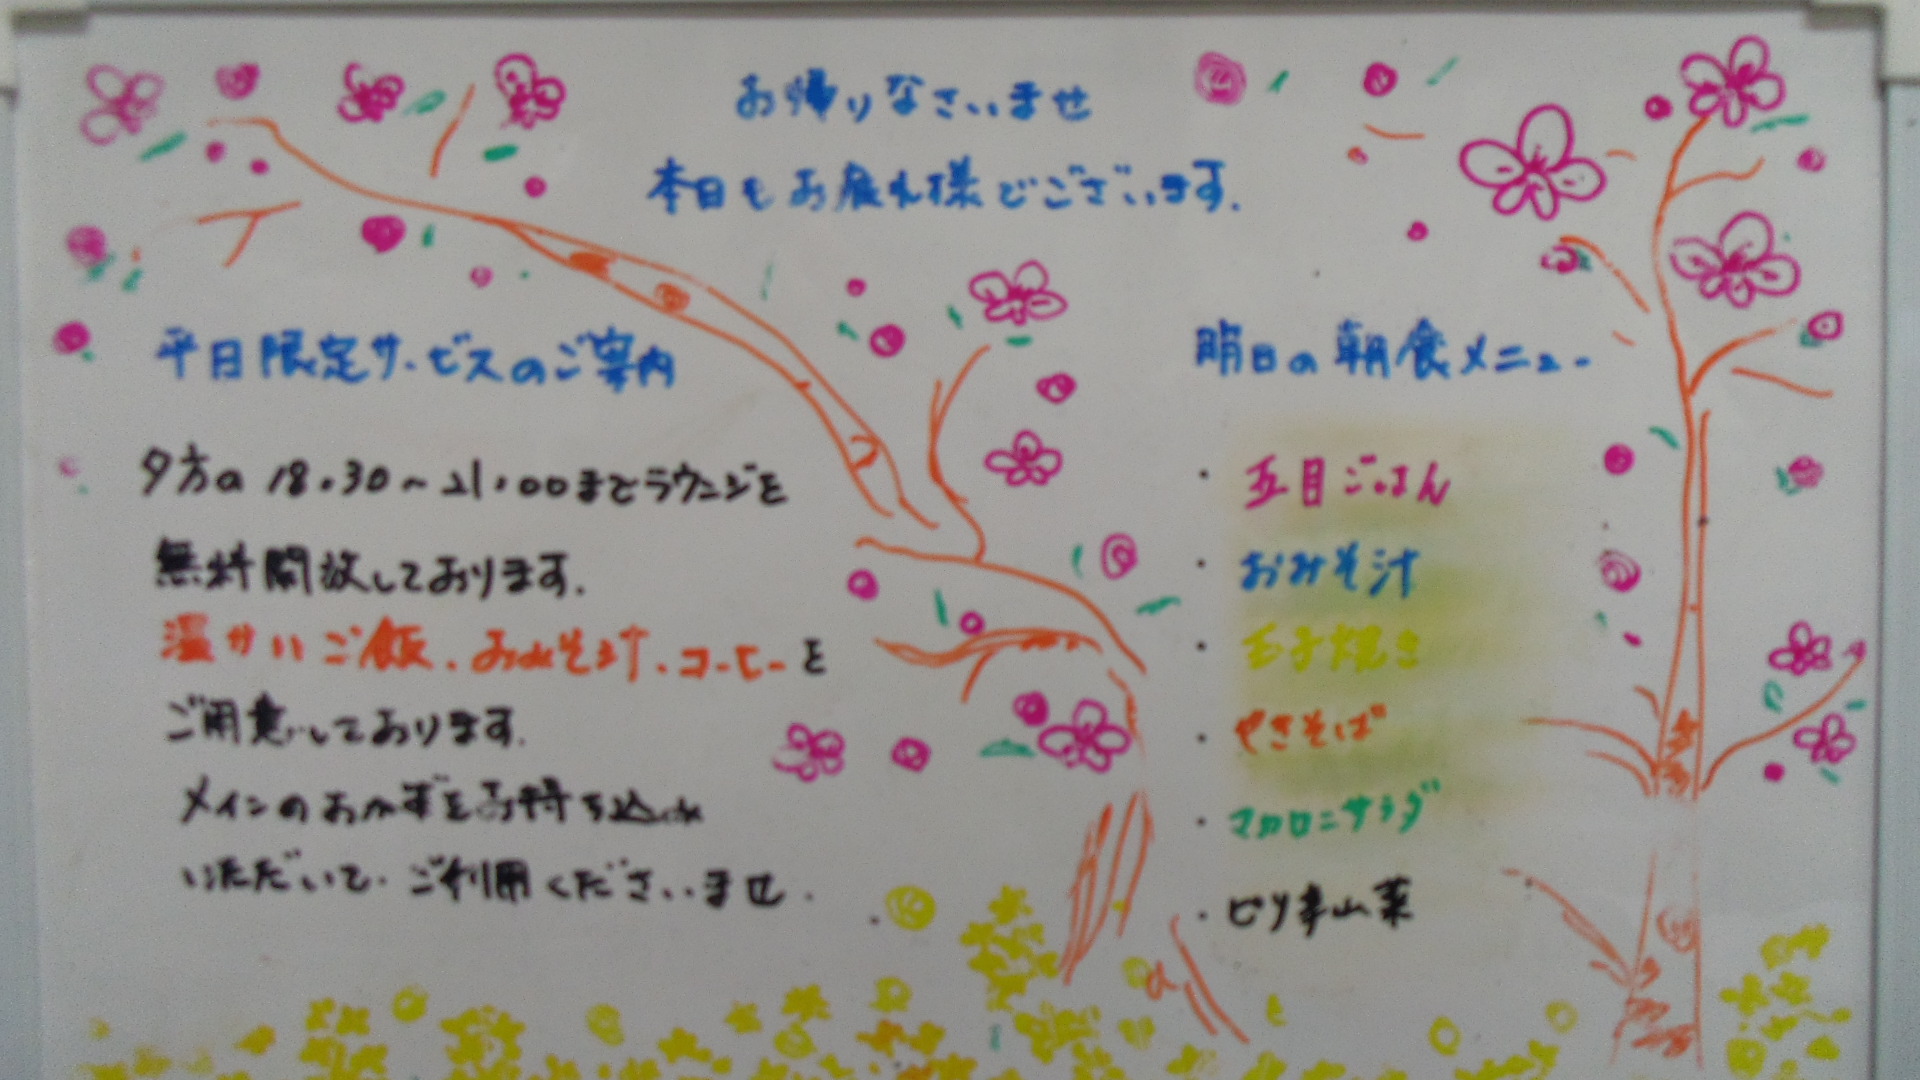 お帰りなさいませ
本日もお疲れ様でございます.
平日限定サービスのご案内
夕方の 18.30~21.00までラウンジを
無料開放しております.
温かいご飯.おみそ汁.コーヒーを
ご用意しております.
メインのおかずをお持ち込み
いただいて.ご利用くださいませ.
明日の朝食メニュー
・五目ごはん
・おみそ汁
・玉子焼き
・やきそば
・マカロニサラダ
・ピリ辛山菜